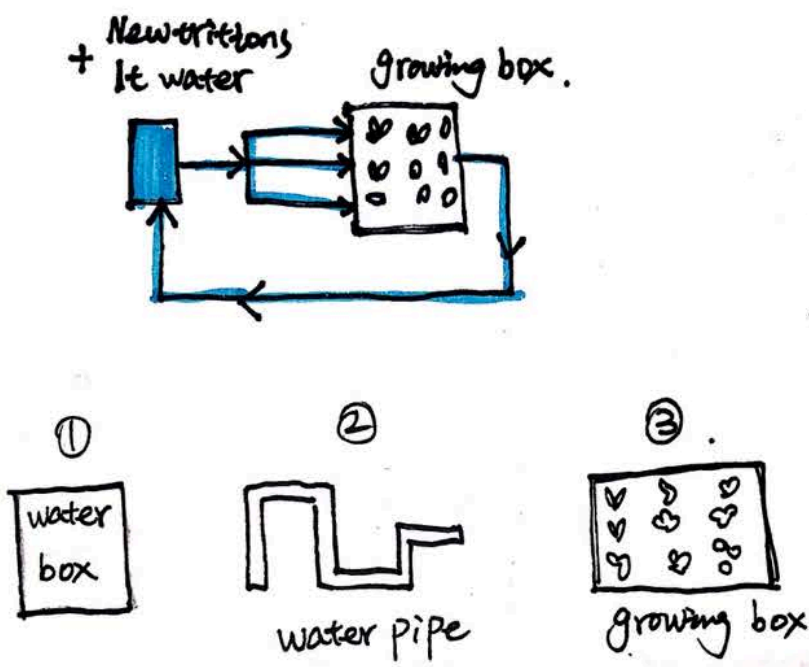 + Newtrittons
1t water
growing box.
①
②
③.
water
box
water pipe
growing box